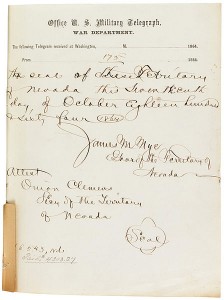 Office U. S. Military Telegraph,
WAR DEPARTMENT.
The following Telegram received at Washington, M. 186
From 175 186
the Seal of this Territory
of Nevada this
day of October Eighteen hundred
& Sixty four 1864
James W. Nye
Gov of the Territory of
Nevada
Attest
Orion Clemens
Secy of the Territory
of Nevada
Seal